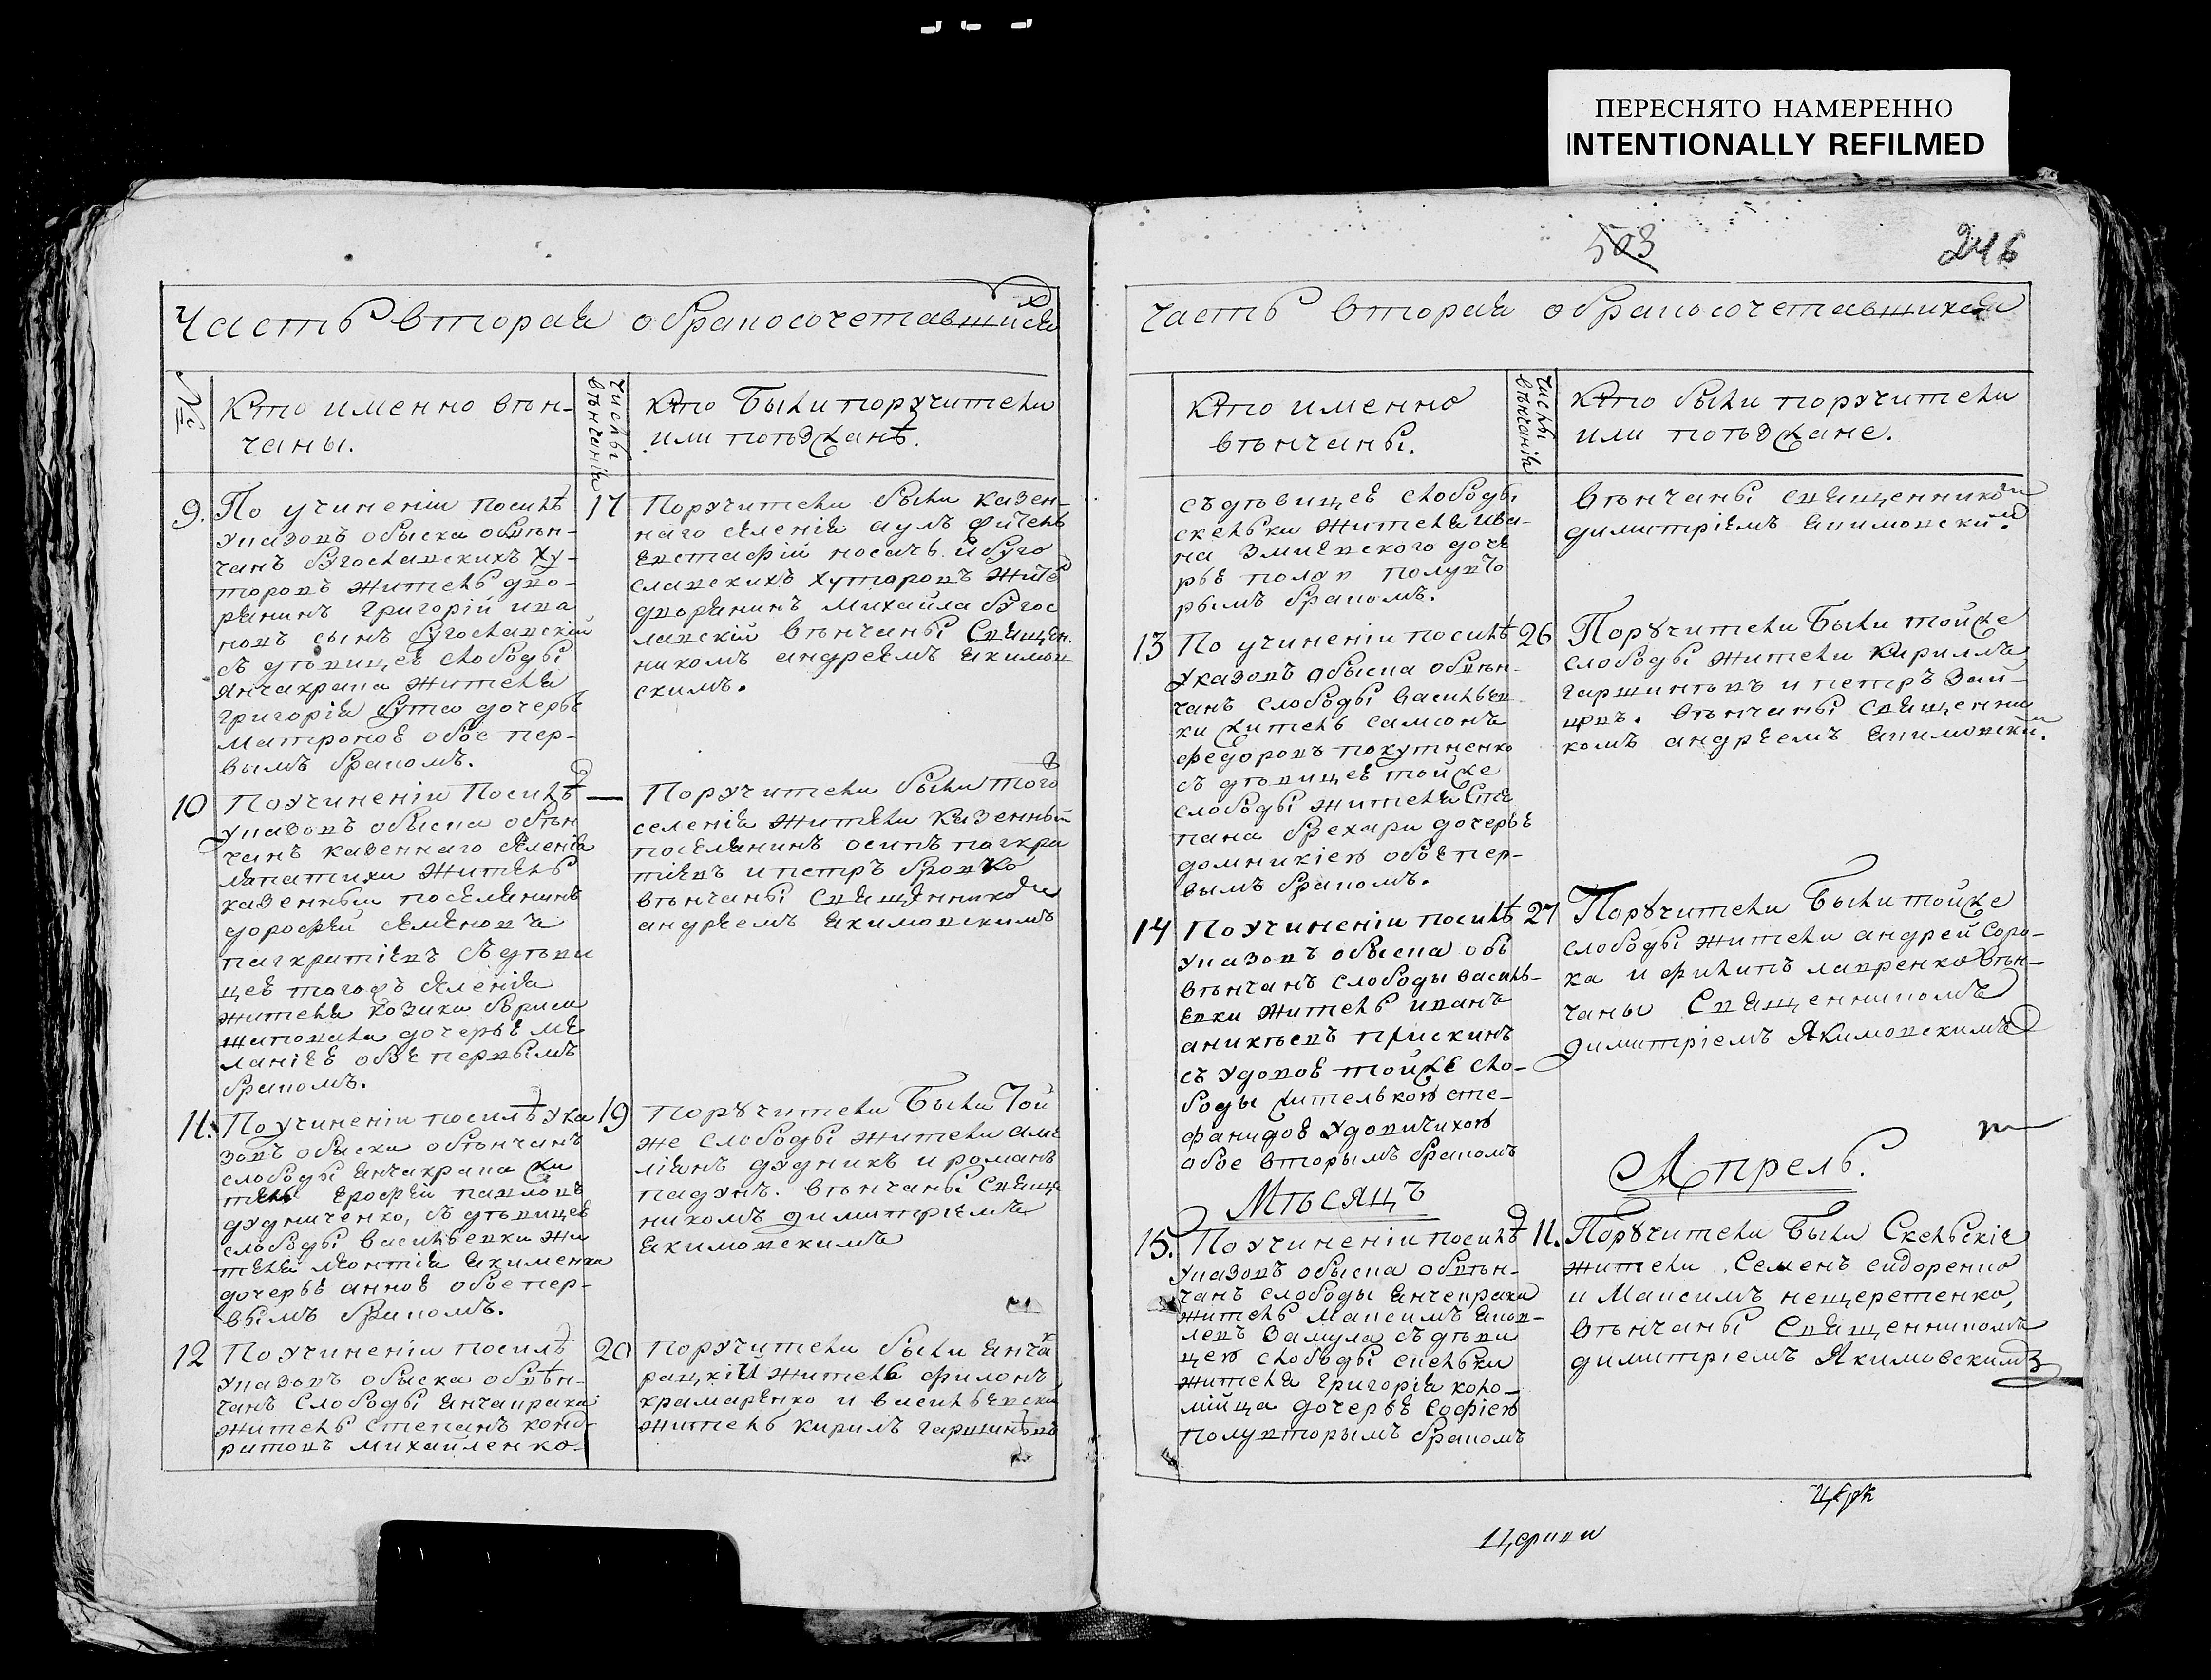 ПЕРЕСНЯТО НАМЕРЕННО
INTENTIONALLY REFILMED
503
246
Часть вторая о бракосочетавшихся
№
Кто именно вѣн-
чаны.
Числы вѣнчанія
Кто были поручители
или поѣзжанѣ.
9.
По учиненіи посилѣ
указовъ обыска обвѣн-
чанъ Бугославскихъ ху-
торовъ житель дво-
рянинъ Григорій ива
новъ сынъ Бугославскій
съ дѣвицею слободы
Янчакрака жителя
григорія Бута дочерью
Матроною обое пер-
вымъ бракомъ.
17
Поручители были казен-
наго селенія
Евстафій носачъ и Буго
славскихъ хуторовъ жите
дворянинъ Михайла Бугос
лавскій вѣнчаны Священ.
никомъ андреемъ якимов
скимъ.
10
По учиненіи Посилѣ
указовъ обыска обвѣн
чанъ казенного селенія
лапатихи житель
казенный поселянинъ
дорофей семеновъ
пагкратіевъ съ дѣви
цею тогожъ селенія
жителя козика бориса
дочерью ме
ланіею обое первымъ
бракомъ.
—
Поручители были того
селенія жители казенный
поселянинъ осипъ пагкра
тіевъ и петръ бровко
вѣнчаны Священникомъ
андреемъ якимовскимъ
11.
По учиненіи посилѣ ука
зовъ обыска обвѣнчанъ
слободы янчакрака жи
тель ерофей павловъ
дудниченко, съ дѣвицею
слободы василъевки жи
теля леонтія якименка
дочерью анною обое пер-
вымъ бракомъ.
19
Поручители были Той
же слободы жители аме
ліянъ дудникъ и романъ
падунъ. вѣнчаны Свящн
никомъ димитріемъ
якимовскимъ
12
По учиненіи посилѣ
указовъ обыска обвѣн-
чанъ Слободы янчакрака
житель Степанъ кондр
ратовъ михайленко
20
Поручители были янча
рацкій житель филонъ
крамаренко и василъевски
житель кирилъ гаршинѣвъ
Часть вторая о бракосочетавшихся
Кто именно
вѣнчаны.
Числы вѣнчанія
Кто были поручители
или поѣзжане.
съ дѣвицею слободы
скелѣки жителя ива-
на Змиевского доче
рью полув полувто
рымъ бракомъ.
вѣнчаны священникомъ
димитріемъ якимовским.
13
По учиненіи посилѣ
указовъ обыска обвѣн-
чанъ слободы василъев
ки житель самсонъ
федоровъ покутненко
съ дѣвицею тойже
слободы жителя Сте
пана брехари дочерью
домникіею обое пер-
вымъ бракомъ.
26
Поручители были тойже
слободы жители Кириллъ
гаршинѣвъ и петръ Зай-
цовъ. вѣнчаны священни
комъ андреемъ якимовски.
14
По учиненіи посилѣ
указовъ обыска обв
вѣнчанъ слободы василь-
евки житель иванъ
аникѣевъ прискинъ
съ удовою тойже сло-
боды жителькою сте-
фанидою удовичихою
обое вторымъ бракомъ
27
Поручители были тойже
слободы жители андрей соро-
ка и филипъ лавренко вѣн-
чаны Священникомъ
димитріемъ Якимовскимъ
Мѣсяцъ
Апрель.
15.
По учиненіи посилѣ
указовъ обыска обвѣн-
чанъ слободы янчекрака
житель Максимъ яков-
левъ Замула съ дѣви
цею слободы скельки
жителя григорія коло-
мійца дочерью софіею
полувторымъ бракомъ
11.
Поручители были Скельскіе
жители Семенъ сидоренко
и Максимъ нещеретенко,
вѣнчаны Священникомъ
димитріемъ Якимовскимъ